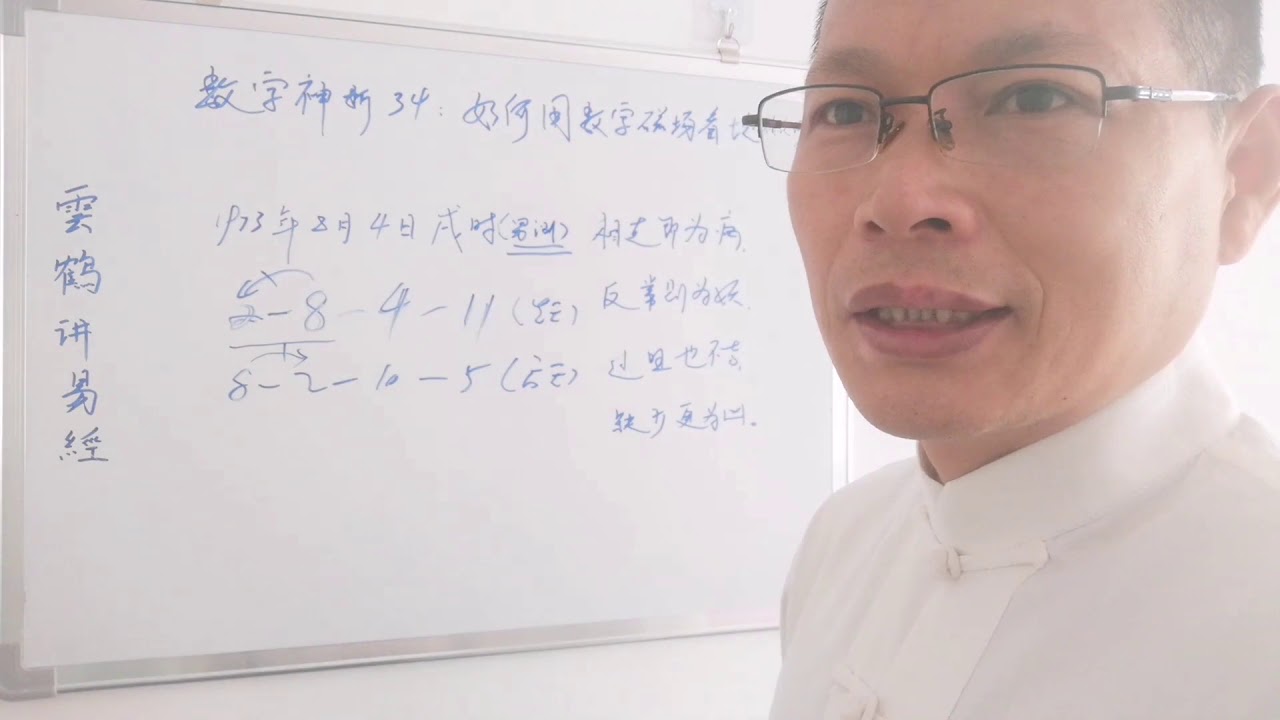 数字神断34：如何用数字磁场看
雲鶴讲易經
1973年8月4日戌时(男测)
2-8-4-11(先天)
8-2-10-5(后天)
相走即为病.
反常则为妖.
过旦也不吉.
缺少更为凶.